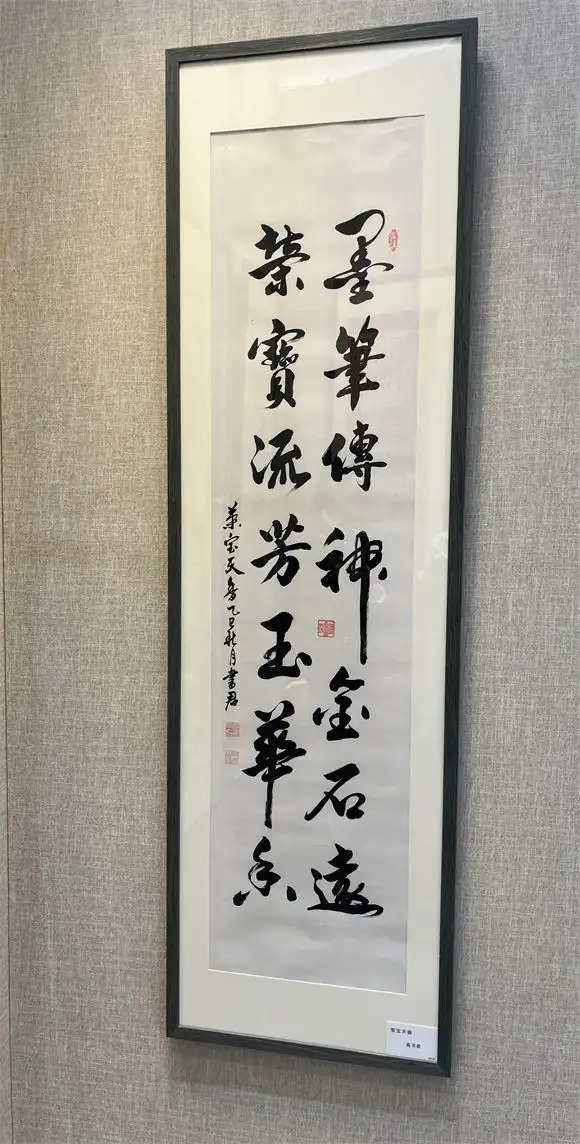 墨筆傳神金石遠
榮寶流芳玉華香
荣宝天香乙巳秋月書君
荣宝天香